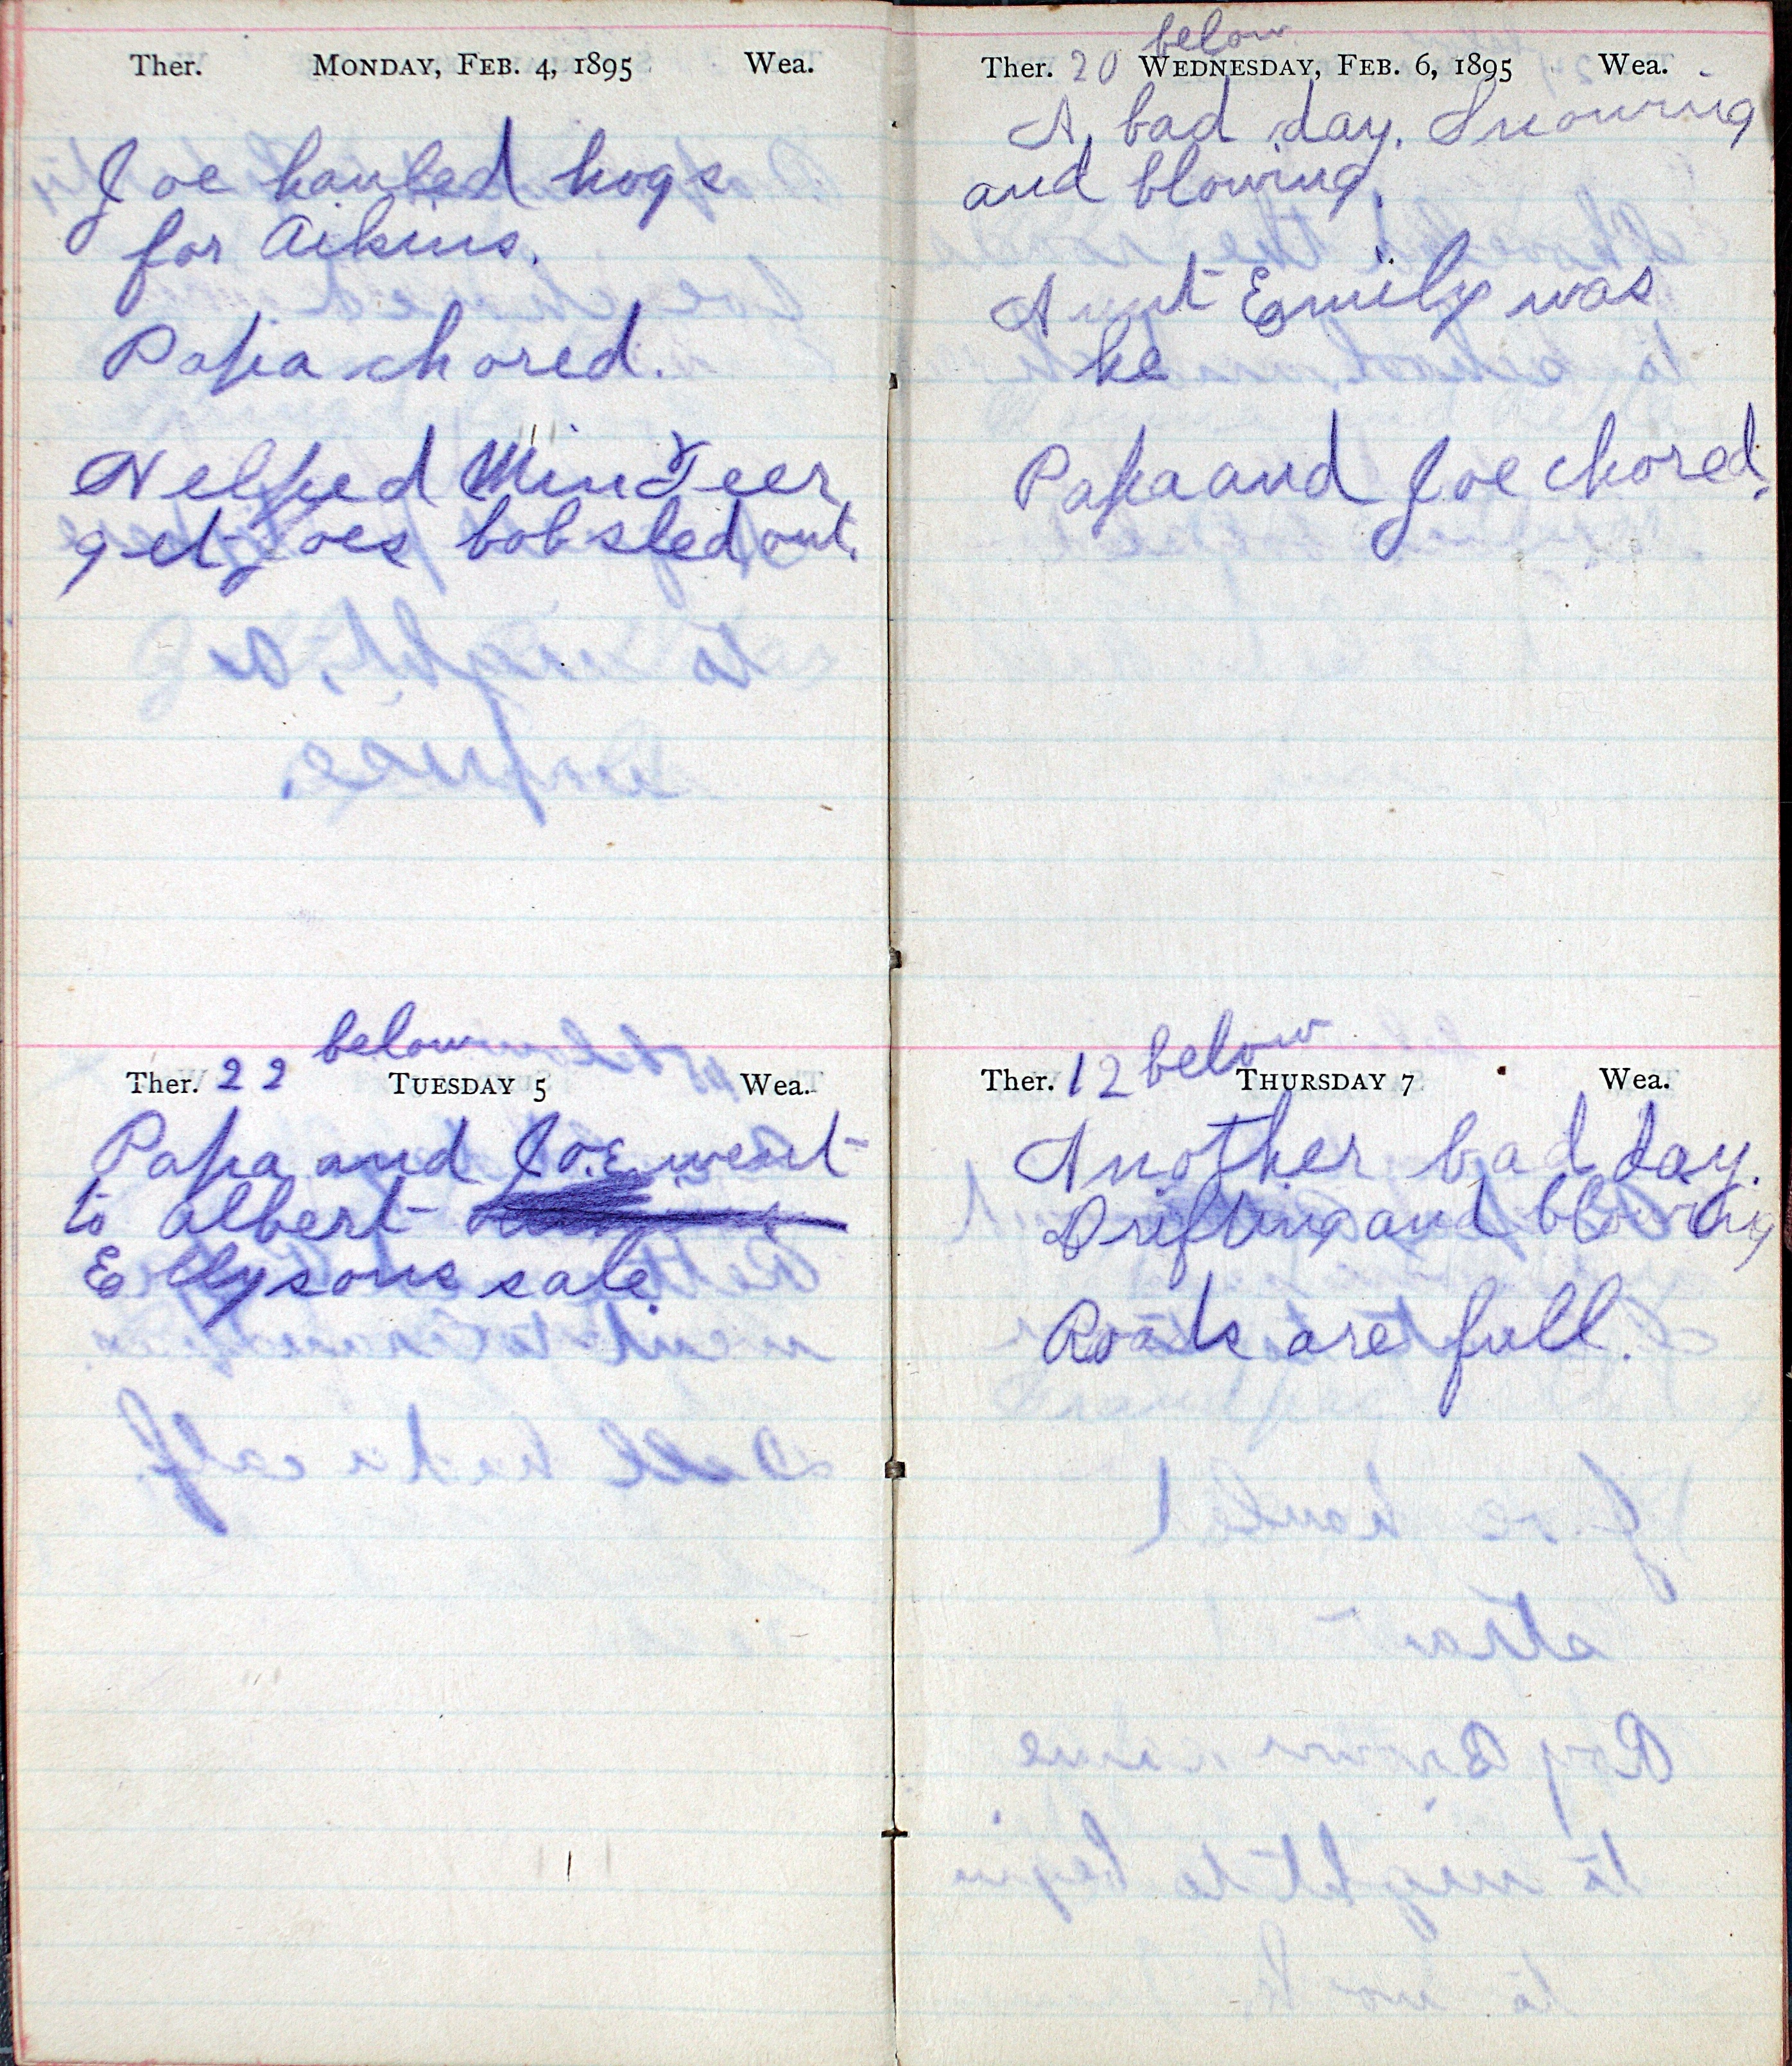 Ther. MONDAY, FEB. 4, 1895 Wea.
Joe hauled hogs
for Aikins.
Papa chored.
Helped Min Teer
get Joes bobsled out.
below
Ther. 22 TUESDAY 5 Wea.
Papa and Joe went
to Albert
Ellysons sale.
below
Ther. 20 WEDNESDAY, FEB. 6, 1895 Wea.
A bad day. Snowing
and blowing.
Aunt Emily was
he
Papa and Joe chored.
Ther. 12 below THURSDAY 7 Wea.
Another bad day.
Drifting and blowing
Roads are full.